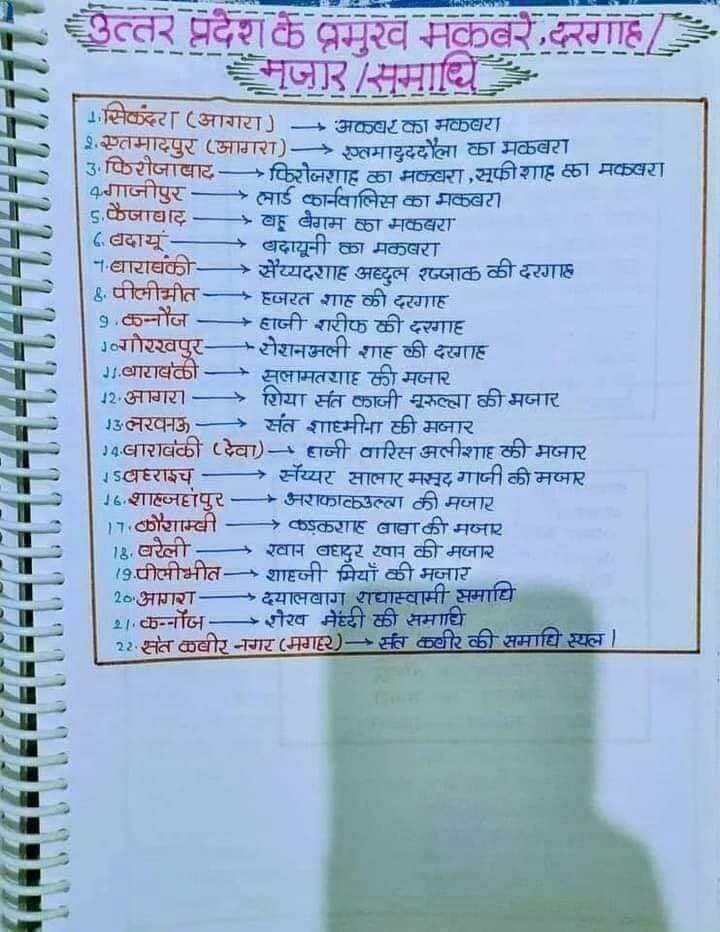 उत्तर प्रदेश के प्रमुख मकबरे, दरगाह/
मजार/समाधि
1. सिकंदरा (आगरा) → अकबर का मकबरा
2. एतमादपुर (आगरा) → एतमादुददौला का मकबरा
3. फिरोजाबाद → फिरोजशाह का मकबरा, सूफी शाह का मकबरा
4. गाजीपुर → लार्ड कार्नवालिस का मकबरा
5. फैजाबाद → बहू बेगम का मकबरा
6. बदायूं → बदायूनी का मकबरा
7. बाराबंकी → सैय्यदशाह अब्दुल रज्जाक की दरगाह
8. पीलीभीत → हजरत शाह की दरगाह
9. कन्नौज → हाजी शरीफ की दरगाह
10. गोरखपुर → रोशनअली शाह की दरगाह
11. बाराबंकी → सलामतशाह की मजार
12. आगरा → शिया संत काजी नूरुल्ला की मजार
13. लखनऊ → संत शाहमीना की मजार
14. बाराबंकी (देवा) → हाजी वारिस अलीशाह की मजार
15. बहराइच् → सॅय्यर सालार मसूद गाजी की मजार
16. शाहजहांपुर → अशफाकउल्ला की मजार
17. कौशाम्बी → कड़कशाह बाबा की मजार
18. बरेली → खान बहादुर खान की मजार
19. पीलीभीत → शाहजी मियाँ की मजार
20. आगरा → दयालबाग राधास्वामी समाधि
21. कन्नौज → शेख मेंहदी की समाधि
22. संत कबीर नगर (मगहर) → संत कबीर की समाधि स्थल।